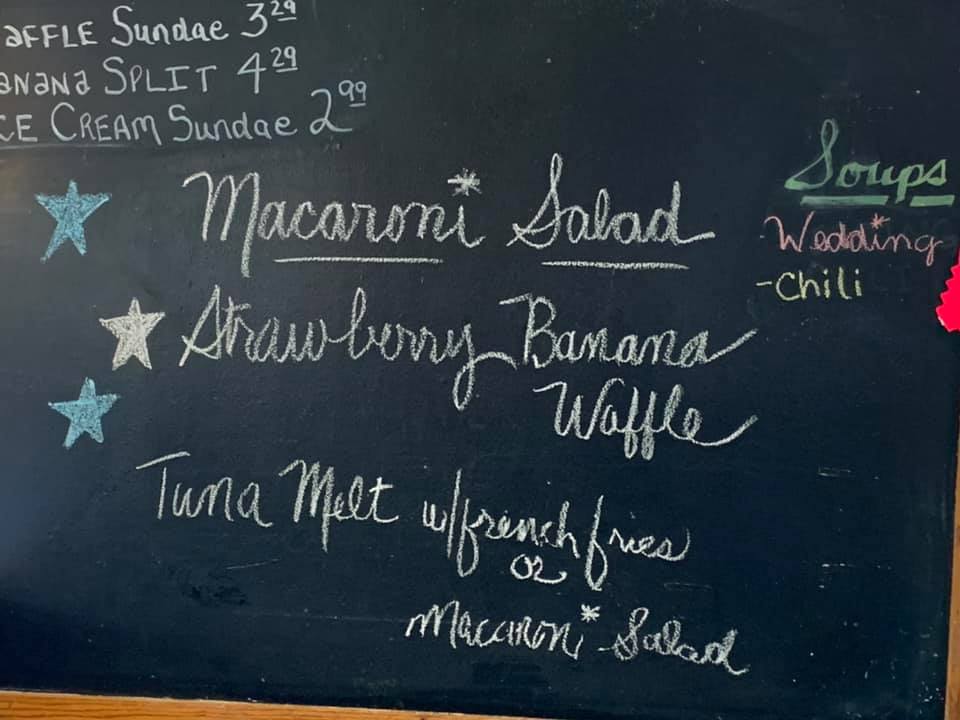 AFFLE Sundae 3 29
ANANA SPLIT 4 29
CE CREAM Sundae 2 99
Macaroni Salad
Strawberry Banana
Waffle
Tuna Melt w/french fries
or
Macaroni Salad
Soups
Wedding
-Chili